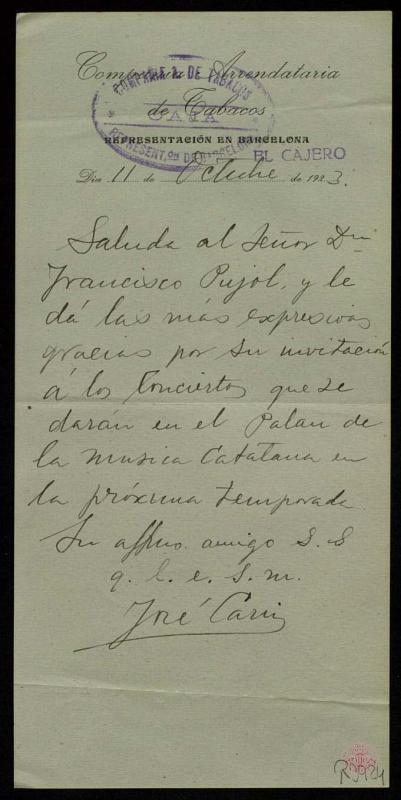 Compañía Arrendataria
de Tabacos
COMPAÑIA A. DE TABACOS
CAJA
REPRESENT.ON DE BARCELONA
REPRESENTACIÓN EN BARCELONA
EL CAJERO
Día 11 de Octubre de 1923.
Saluda al Señor Dn
Francisco Pujol, y le
dá las más expresivas
gracias por su invitación
á los Conciertos que se
darán en el Palau de
la musica Catalana en
la próxima temporada
Su affmo. amigo S. S
q. l. e. s. m.
José